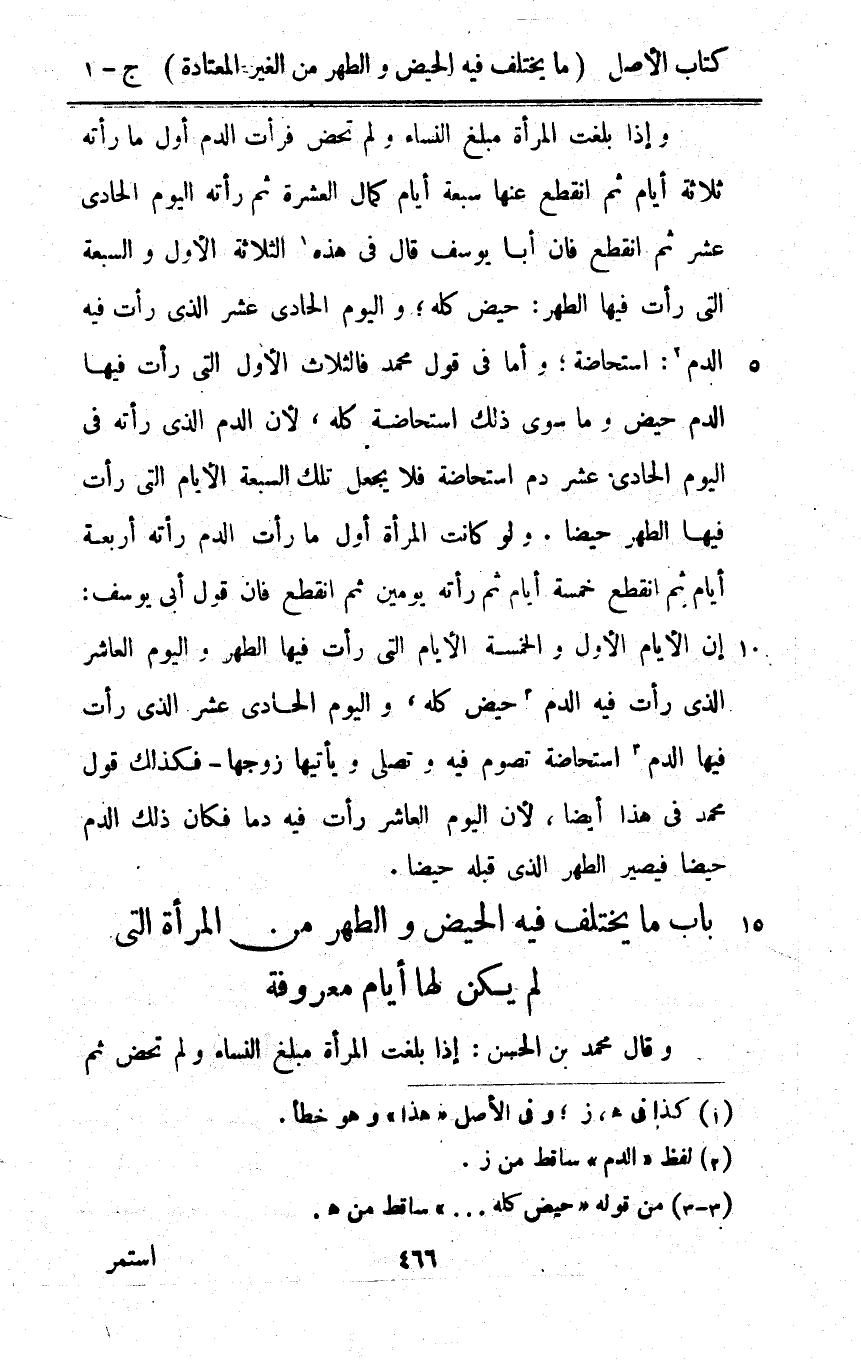 كتاب الأصل ( ما يختلف فيه الحيض و الطهر من الغير المعتادة ) ج - ١
و إذا بلغت المرأة مبلغ النساء و لم تحض فرأت الدم أول ما رأته
ثلاثة أيام ثم انقطع عنها سبعة أيام كمال العشرة ثم رأته اليوم الحادى
عشر ثم انقطع فان أبا يوسف قال فى هذه ١ الثلاثة الأول و السبعة
التى رأت فيها الطهر : حيض كله ؛ و اليوم الحادى عشر الذى رأت فيه
٥ الدم ٢ : استحاضة ؛ و أما فى قول محمد فالثلاث الأول التى رأت فيها
الدم حيض و ما سوى ذلك استحاضة كله ، لأن الدم الذى رأته فى
اليوم الحادى عشر دم استحاضة فلا يجعل تلك السبعة الأيام التى رأت
فيها الطهر حيضا . و لو كانت المرأة أول ما رأت الدم رأته أربعة
أيام ثم انقطع خمسة أيام ثم رأته يومين ثم انقطع فان قول أبى يوسف :
١٠ إن الأيام الأول و الخمسة الأيام التى رأت فيها الطهر و اليوم العاشر
الذى رأت فيه الدم ٣ حيض كله ، و اليوم الحادى عشر الذى رأت
فيها الدم ٣ استحاضة تصوم فيه و تصلى و يأتيها زوجها - فكذلك قول
محمد فى هذا أيضا ، لأن اليوم العاشر رأت فيه دما فكان ذلك الدم
حيضا فيصير الطهر الذى قبله حيضا .
١٥ باب ما يختلف فيه الحيض و الطهر من المرأة التى
لم يكن لها أيام معروفة
و قال محمد بن الحسن : إذا بلغت المرأة مبلغ النساء و لم تحض ثم
(١) كذا فى ه ، ز ؛ و فى الأصل « هذا » و هو خطأ .
(٢) لفظ « الدم » ساقط من ز .
(٣-٣) من قوله « حيض كله ... » ساقط من ه .
٤٦٦
استمر